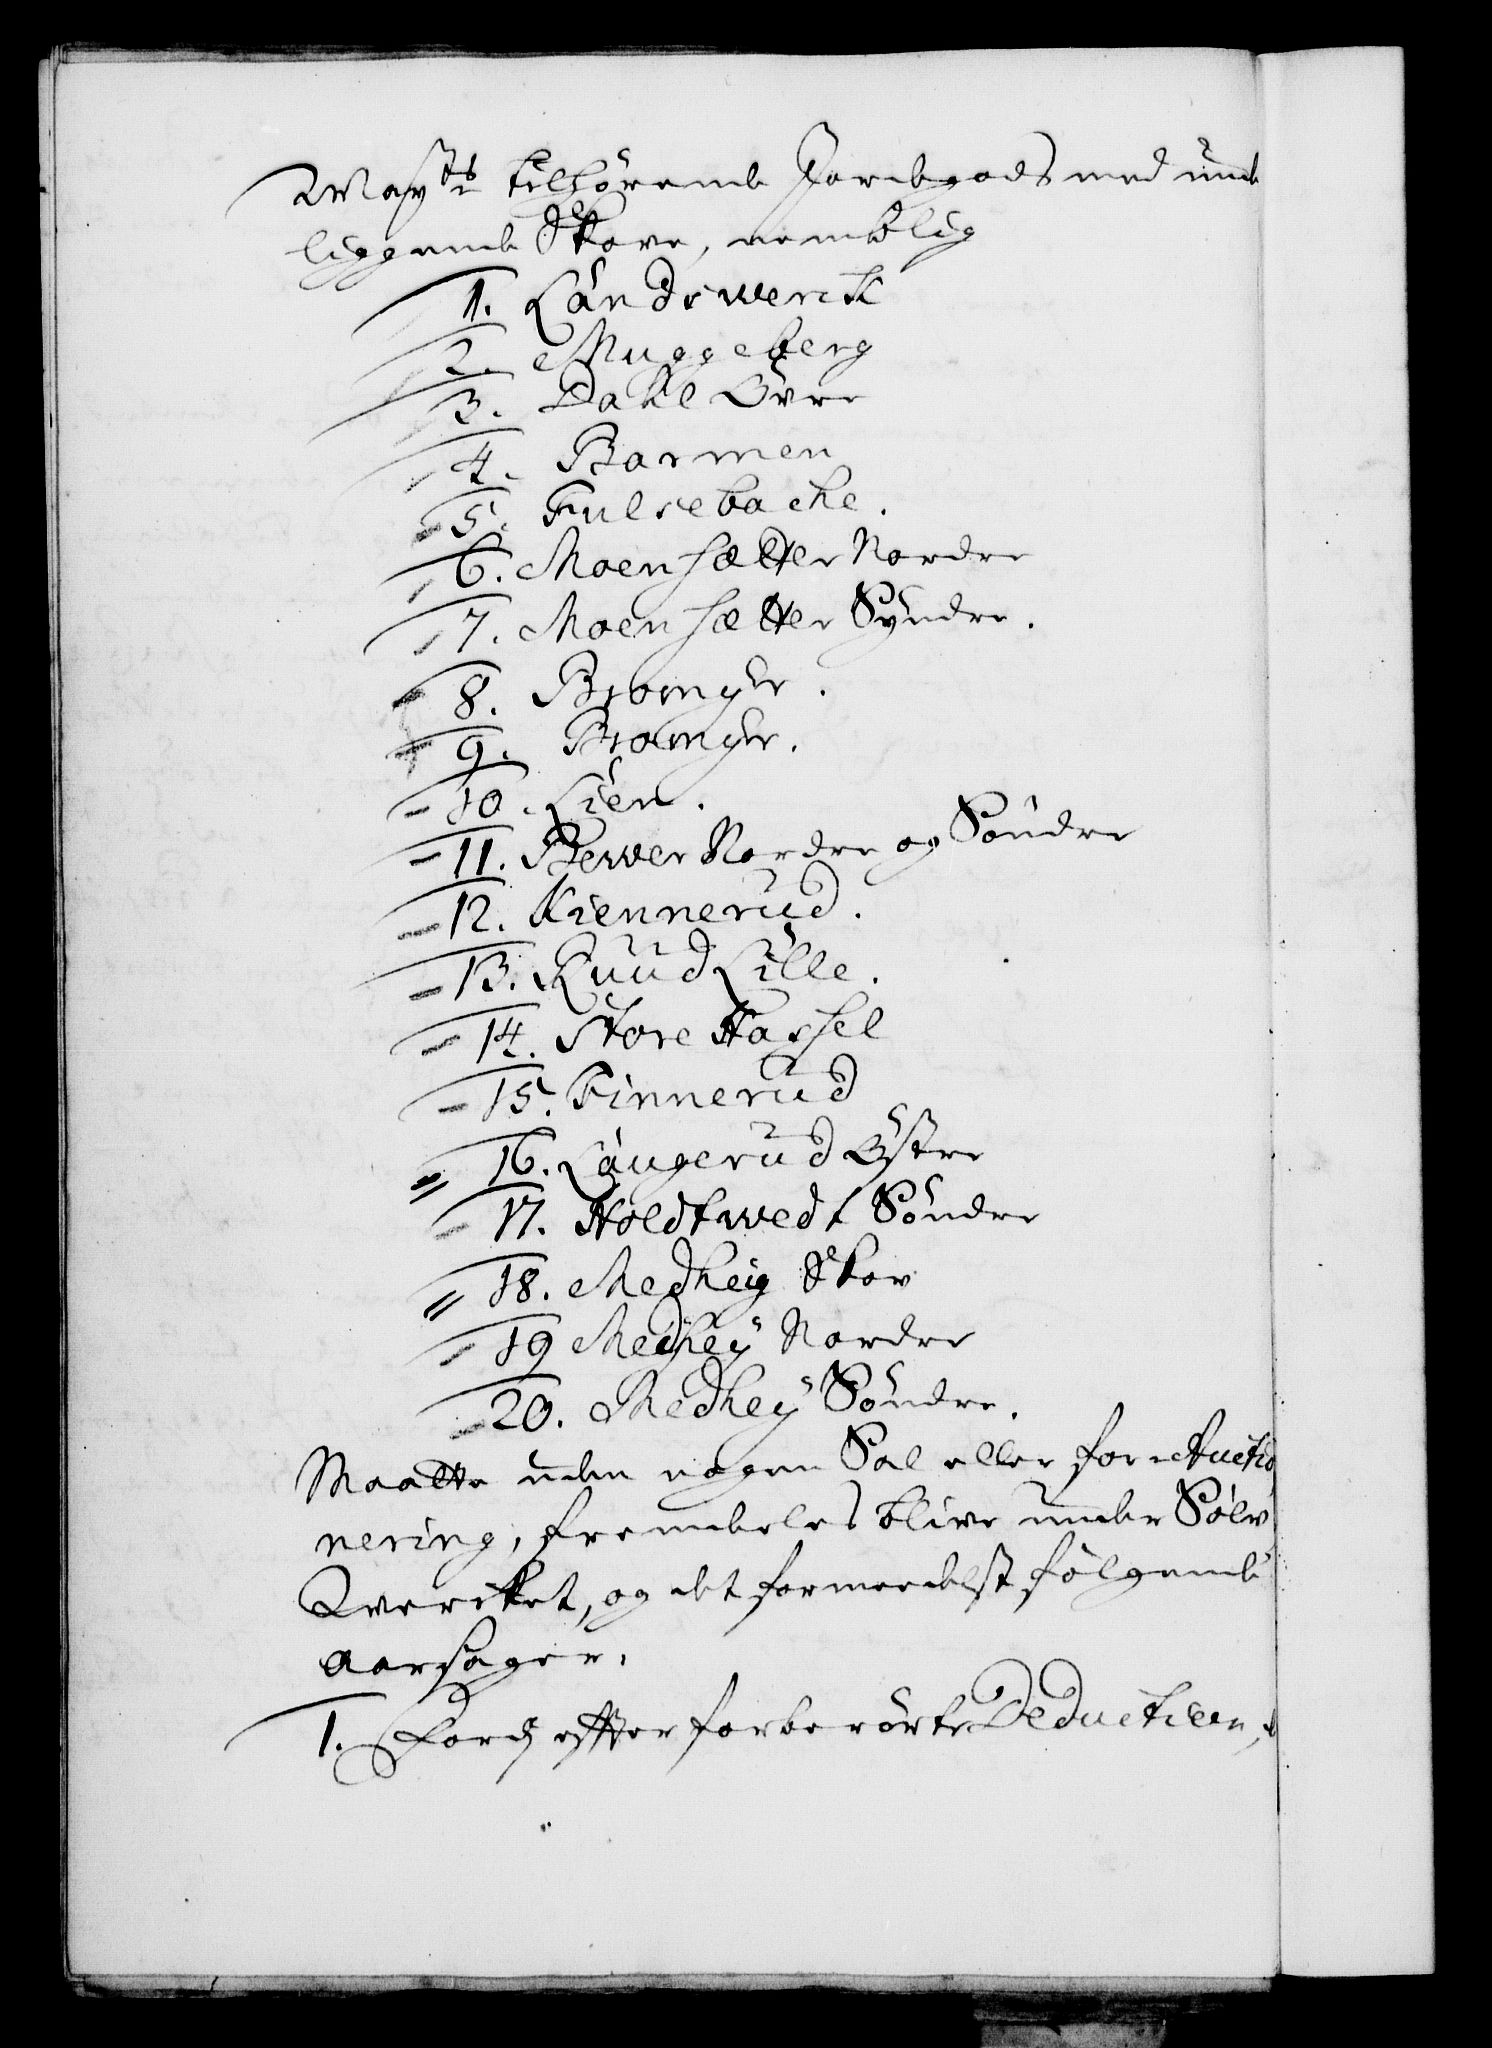 Mayts tilhørende Jordegods med unde
liggende Skove, nemblig
1. Landswerck
2. Muggeberg
3. Dahl Øvre
4. Barmen
5. Fulsebache.
6. Moensætter Nordre
7. Moensætter Syndre.
8.
9.
10. Lien.
11. Berver Nordre og Søndre
12. Kiennerud.
13. Ruud Lille.
14. Store Hassel
15. Finnerud
16. Langerud Østre
17. Holdtwedt Søndre
18. Medheig Skov
19 Medheÿ Nordre
20. Medheÿ Søndre.
Maatte uden nogen Sal eller for Auctio
nering, fremdeles blive under Sølv
Qvercket, og det formedelst følgende
Aarsager.
1. Fordj effter forberørte Deduction,